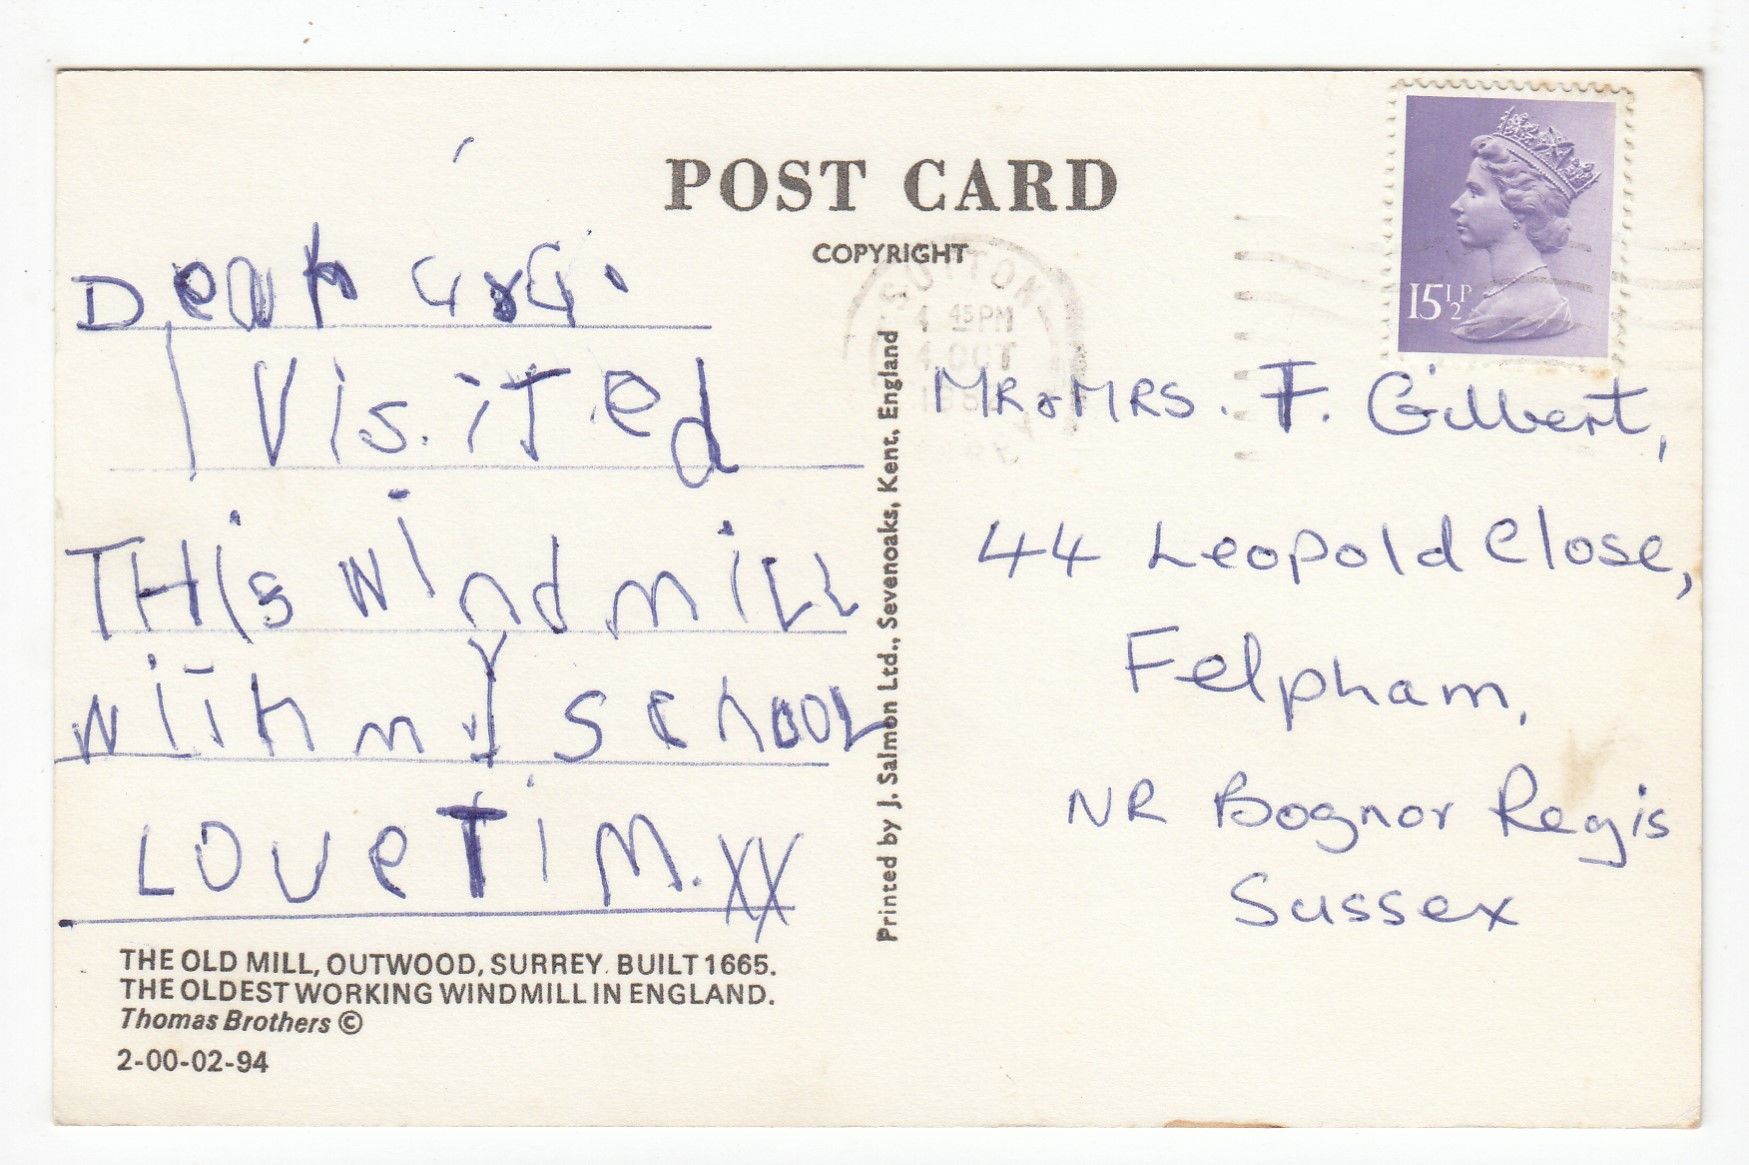 POST CARD
COPYRIGHT
SUTTON
45PM
4 OCT
15½P
Dear G&G.
I VisiTed
THis windmiLL
wiTh my schooL
LOve TiM. XX
THE OLD MILL, OUTWOOD, SURREY. BUILT 1665.
THE OLDEST WORKING WINDMILL IN ENGLAND.
Thomas Brothers ©
2-00-02-94
Printed by J. Salmon Ltd., Sevenoaks, Kent, England
MR & MRS. F. Gilbert,
44 Leopold Close,
Felpham,
NR Bognor Regis
Sussex